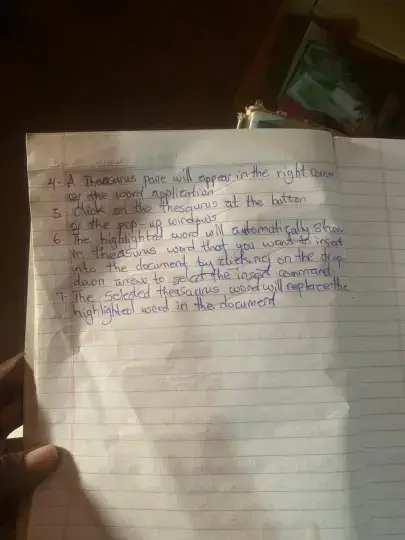 4. A Thesaurus pane will appear in the right corner
of the word application
5. Click on the thesaurus at the button
of the pop-up windows
6. The highlighted word will automatically show
in thesaurus word that you want to insert
into the document by clicking on the drop
down arrow to select the insert command.
7. The selected thesaurus word will replace the
highlighted word in the document